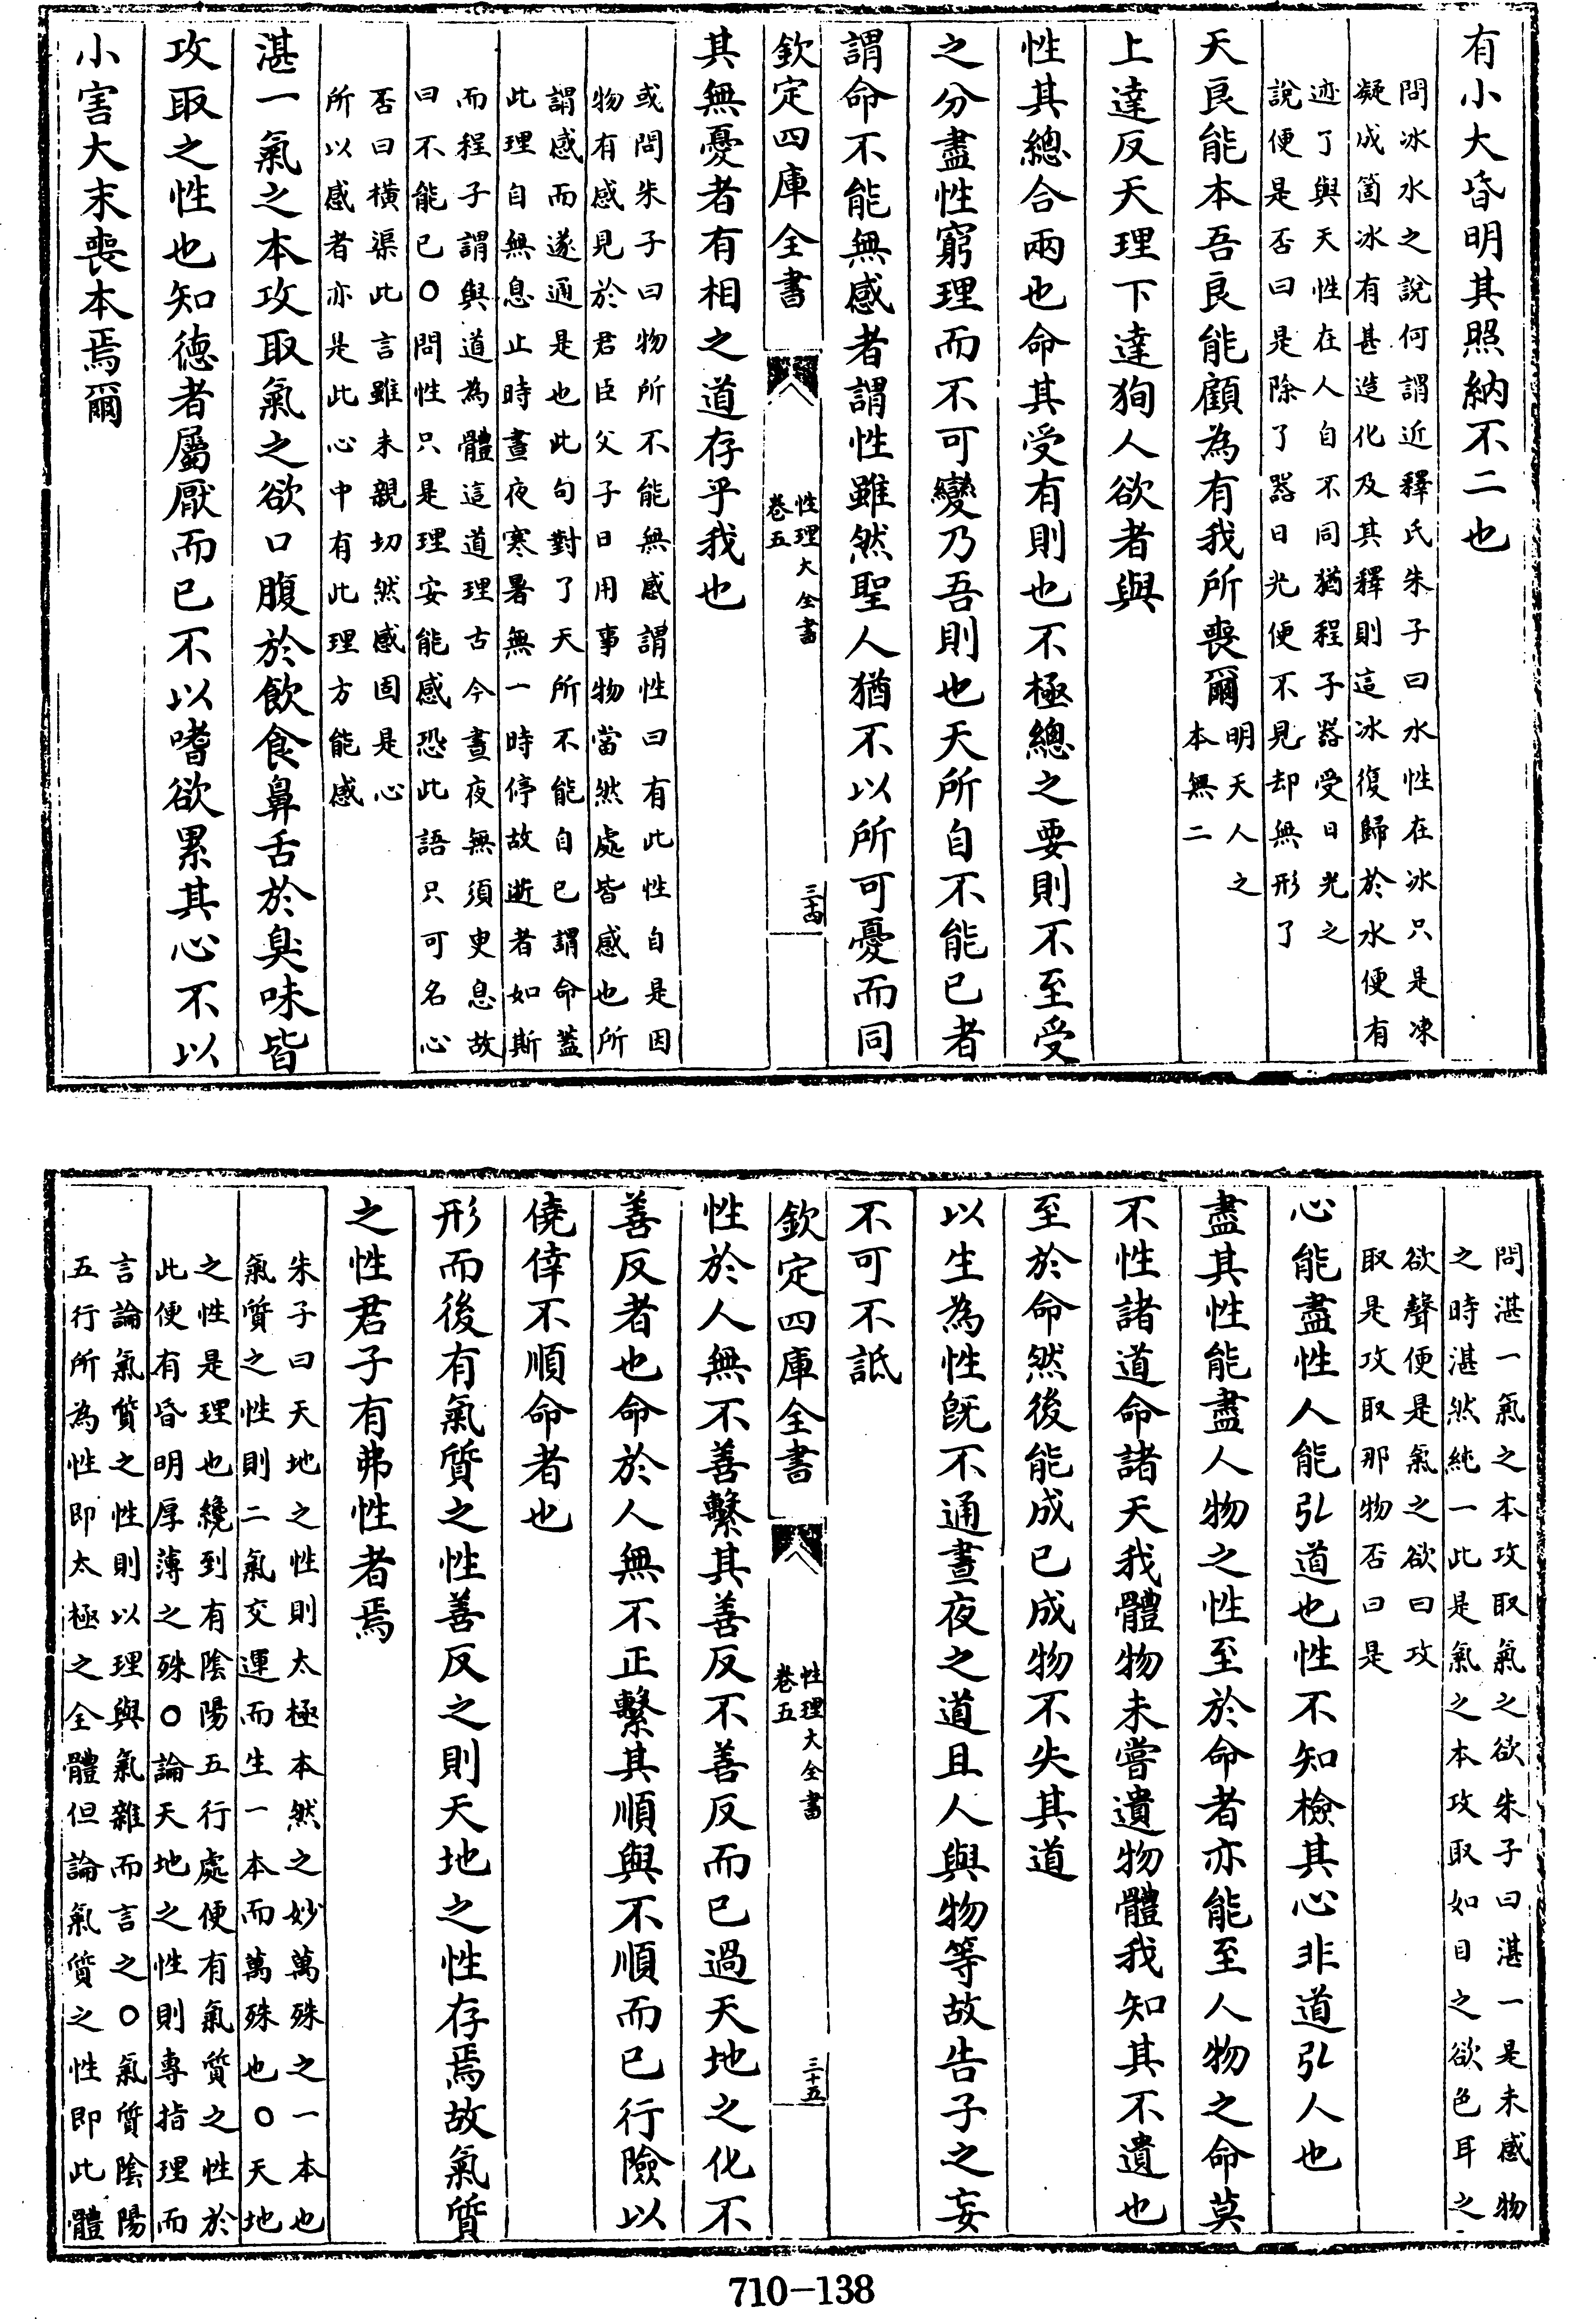 有小大昏明其照納不二也
問冰水之說何謂近釋氏朱子曰水性在冰只是凍
凝成箇冰有甚造化及其釋則這冰復歸於水便有
迹了與天性在人自不同猶程子器受日光之
說便是否曰是除了器日光便不見却無形了
天良能本吾良能顧為有我所喪爾
明天人之
本無二
上達反天理下達狥人欲者與
性其總合兩也命其受有則也不極總之要則不至受
之分盡性窮理而不可變乃吾則也天所自不能已者
謂命不能無感者謂性雖然聖人猶不以所可憂而同
欽定四庫全書
性理大全書
卷五
三十四
其無憂者有相之道存乎我也
或問朱子曰物所不能無感謂性曰有此性自是因
物有感見於君臣父子日用事物當然處皆感也所
謂感而遂通是也此句對了天所不能自已謂命蓋
此理自無息止時晝夜寒暑無一時停故逝者如斯
而程子謂與道為體這道理古今晝夜無須臾息故
曰不能已○問性只是理安能感恐此語只可名心
否曰橫渠此言雖未親切然感固是心
所以感者亦是此心中有此理方能感
湛一氣之本攻取氣之欲口腹於飲食鼻舌於臭味皆
攻取之性也知德者屬厭而已不以嗜欲累其心不以
小害大末喪本焉爾
問湛一氣之本攻取氣之欲朱子曰湛一是未感物
之時湛然純一此是氣之本攻取如目之欲色耳之
欲聲便是氣之欲曰攻
取是攻取那物否曰是
心能盡性人能弘道也性不知檢其心非道弘人也
盡其性能盡人物之性至於命者亦能至人物之命莫
不性諸道命諸天我體物未嘗遺物體我知其不遺也
至於命然後能成已成物不失其道
以生為性旣不通晝夜之道且人與物等故告子之妄
不可不詆
欽定四庫全書
性理大全書
卷五
三十五
性於人無不善繫其善反不善反而已過天地之化不
善反者也命於人無不正繫其順與不順而已行險以
僥倖不順命者也
形而後有氣質之性善反之則天地之性存焉故氣質
之性君子有弗性者焉
朱子曰天地之性則太極本然之妙萬殊之一本也
氣質之性則二氣交運而生一本而萬殊也○天地
之性是理也纔到有陰陽五行處便有氣質之性於
此便有昏明厚薄之殊○論天地之性則專指理而
言論氣質之性則以理與氣雜而言之○氣質陰陽
五行所為性即太極之全體但論氣質之性即此體
710-138